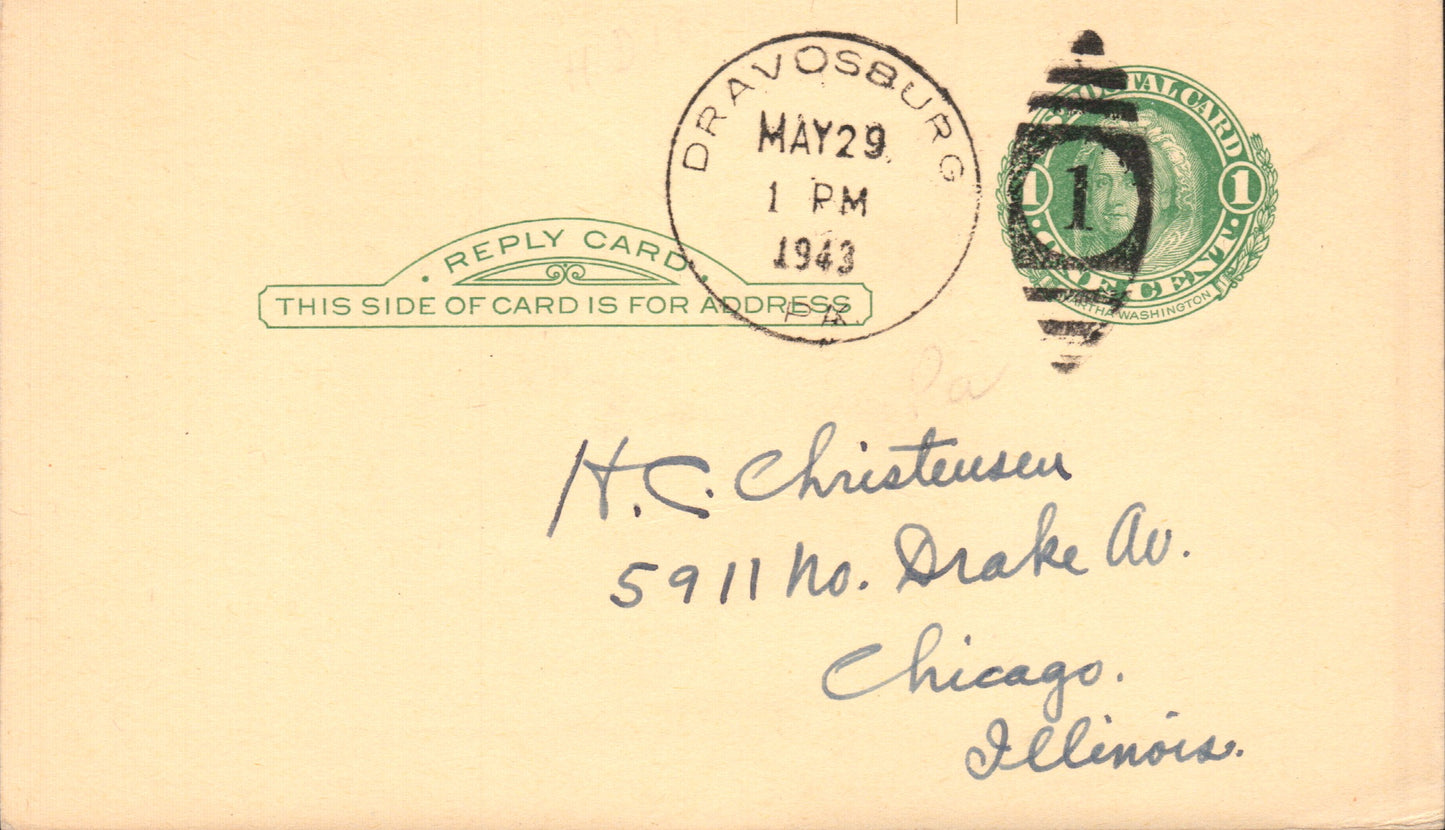 DRAVOSBURG
MAY 29
1 PM
1943
PA.
POSTAL CARD
1 1
1
ONE CENT
MARTHA WASHINGTON
· REPLY CARD ·
THIS SIDE OF CARD IS FOR ADDRESS
Pa
H. C. Christensen
5911 No. Drake Av.
Chicago.
Illinois.